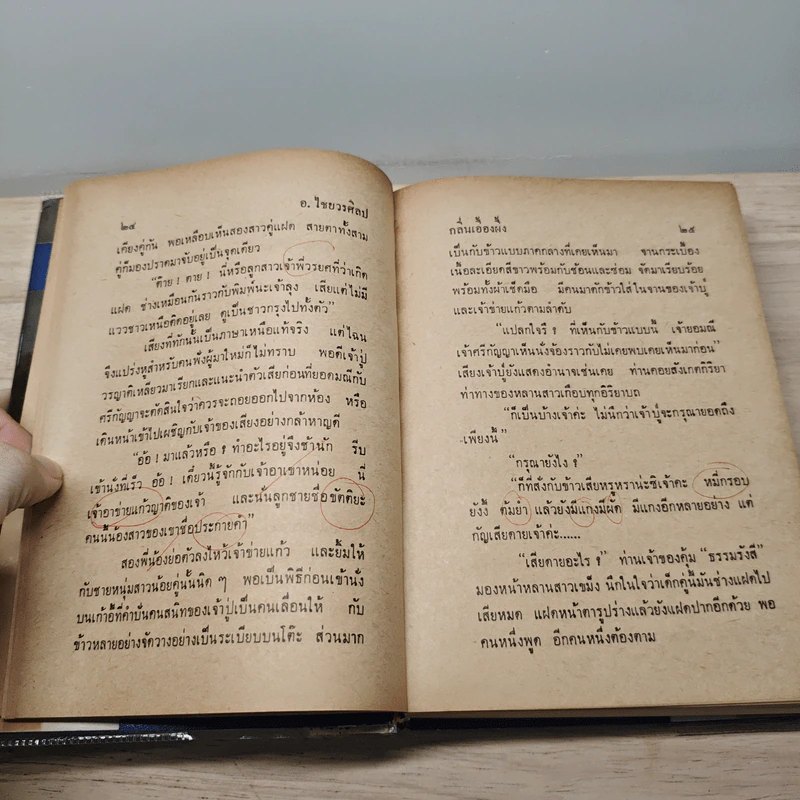 ๒๔
อ. ไชยวรศิลป
เคียงคู่กัน พอเหลือบเห็นสองสาวคู่แฝด สายตาทั้งสาม
คู่ก็มองปราดมาจับอยู่เป็นจุดเดียว
"ต๊าย ! ตาย ! นี่หรือลูกสาวเจ้าพี่วรยศที่ว่าเกิด
แฝด ช่างเหมือนกันราวกับพิมพ์นะเจ้าลุง เสียแต่ไม่มี
แววชาวเหนือติดอยู่เลย ดูเป็นชาวกรุงไปทั้งตัว"
เสียงที่ทักนั้นเป็นภาษาเหนือแท้จริง แต่ไฉน
จึงแปร่งหูสำหรับคนฟังผู้มาใหม่ก็ไม่ทราบ พอดีเจ้าปู่
วรญาติเหลียวมาเรียกและแนะนำตัวเสียก่อนที่ยอดมณีกับ
ศรีกัญญาจะตัดสินใจว่าควรจะถอยออกไปจากห้อง หรือ
เดินหน้าเข้าไปเผชิญกับเจ้าของเสียงอย่างกล้าหาญดี
"อ้อ ! มาแล้วหรือ ? ทำอะไรอยู่จึงช้านัก รีบ
เข้านั่งที่เร็ว อ้อ ! เดี๋ยวนี้รู้จักกับเจ้าอาเขาหน่อย นี่
เจ้าอาข่ายแก้วญาติของเจ้า และนั่นลูกชายชื่อขัตติยะ
คนนั้นน้องสาวของเขาชื่อประกายคำ"
สองพี่น้องย่อตัวลงไหว้เจ้าข่ายแก้ว และยิ้มให้
กับชายหนุ่มสาวน้อยคู่นั้นนิด ๆ พอเป็นพิธีก่อนเข้านั่ง
บนเก้าอี้ที่คำปันคนสนิทของเจ้าปู่เป็นคนเลื่อนให้ กับ
ข้าวหลายอย่างจัดวางอย่างเป็นระเบียบบนโต๊ะ ส่วนมาก
กลิ่นเอื้องผึ้ง
๒๕
เป็นกับข้าวแบบภาคกลางที่เคยเห็นมา จานกระเบื้อง
เนื้อละเอียดสีขาวพร้อมกับช้อนและซ่อม จัดมาเรียบร้อย
พร้อมทั้งผ้าเช็ดมือ มีคนมาตักข้าวใส่ในจานของเจ้าปู่
และเจ้าข่ายแก้วตามลำดับ
"แปลกใจรึ ? ที่เห็นกับข้าวแบบนี้ เจ้ายอมณี
เจ้าศรีกัญญาเห็นนั่งจ้องราวกับไม่เคยพบเคยเห็นมาก่อน"
เสียงเจ้าปู่ยังแสดงอำนาจเช่นเคย ท่านคอยสังเกตกิริยา
ท่าทางของหลานสาวเกือบทุกอิริยาบถ
"ก็เป็นบ้างเจ้าค่ะ ไม่นึกว่าเจ้าปู่จะกรุณายอดถึง
เพียงนี้"
"กรุณายังไง ?"
"ก็ที่สั่งกับข้าวเสียหรูหราน่ะซิเจ้าคะ หมี่กรอบ
ยังงี้ ต้มยำ แล้วยังมีแกงมีผัด มีแกงอีกหลายอย่าง แต่
กัญเสียดายเจ้าค่ะ......
"เสียดายอะไร ?" ท่านเจ้าของคุ้ม "ธรรมรังสี"
มองหน้าหลานสาวเขม็ง นึกในใจว่าเด็กคู่นี้มันช่างแฝดไป
เสียหมด แฝดหน้าตารูปร่างแล้วยังแฝดปากอีกด้วย พอ
คนหนึ่งพูด อีกคนหนึ่งต้องตาม